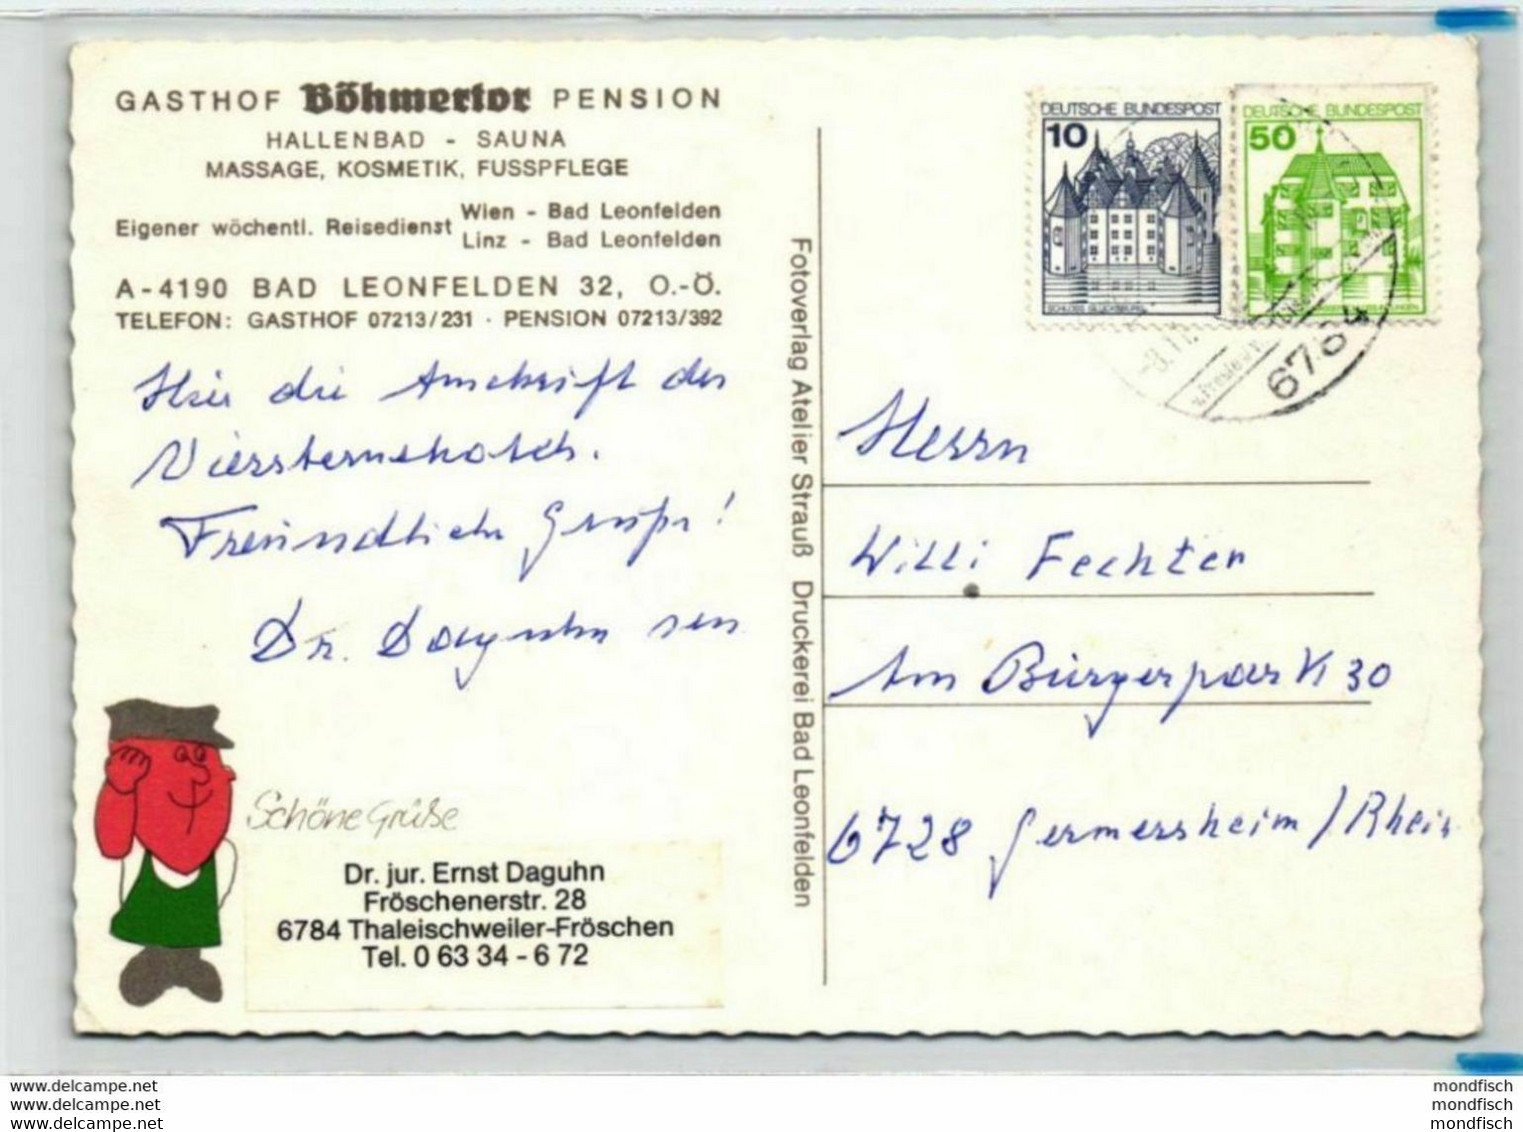 GASTHOF Böhmertor PENSION
HALLENBAD - SAUNA
MASSAGE, KOSMETIK, FUSSPFLEGE
Eigener wöchentl. Reisedienst Wien - Bad Leonfelden
Linz - Bad Leonfelden
A-4190 BAD LEONFELDEN 32, O.-Ö.
TELEFON: GASTHOF 07213/231 · PENSION 07213/392
Hier die Anschrift des
Viersternehotels.
Freundliche Grüße!
Dr. Daguhn sen
Schöne Grüße
Dr. jur. Ernst Daguhn
Fröschenerstr. 28
6784 Thaleischweiler-Fröschen
Tel. 0 63 34 - 6 72
Fotoverlag Atelier Strauß Druckerei Bad Leonfelden
DEUTSCHE BUNDESPOST
10
SCHLOSS GLÜCKSBURG
DEUTSCHE BUNDESPOST
50
6784
Herrn
Willi Fechter
Am Bürgerpark 30
6728 Germersheim/Rhein
www.delcampe.net
www.delcampe.net
www.delcampe.net
mondfisch
mondfisch
mondfisch